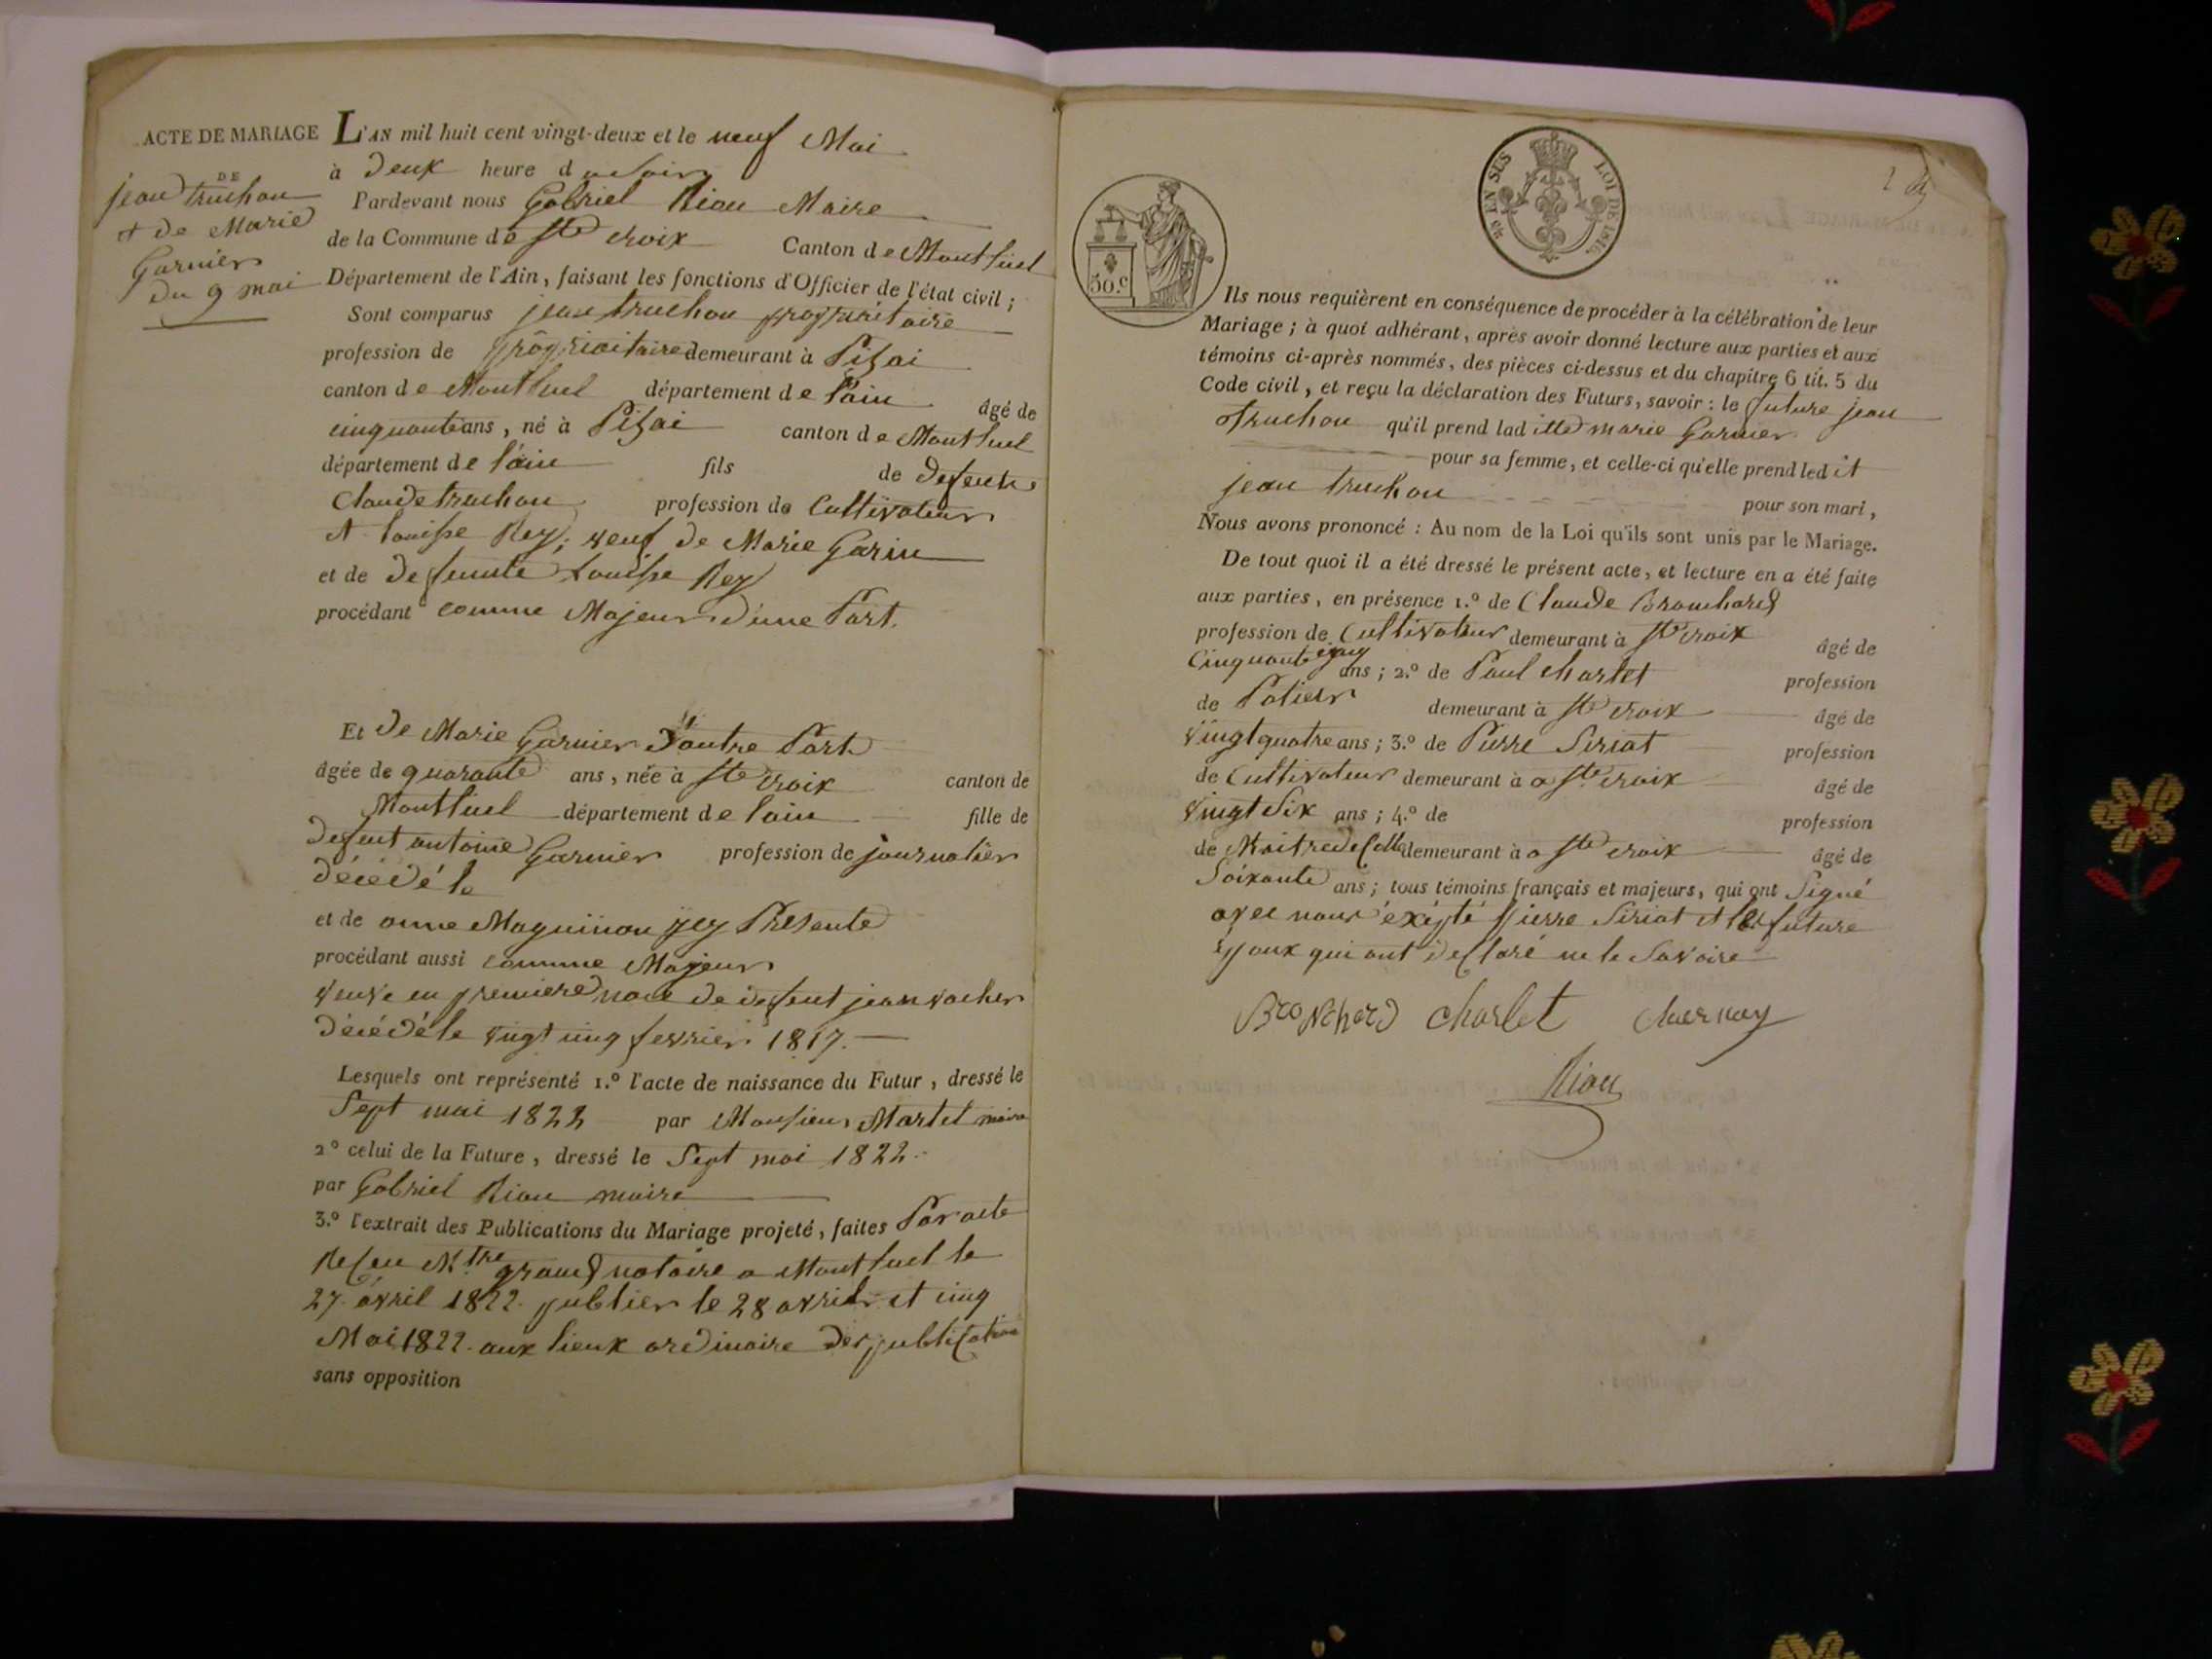 ACTE DE MARIAGE
DE
jean truchon
et de Marie
Garnier
du 9 mai
L'AN mil huit cent vingt-deux et le neuf Mai
à deux heure du soir
Pardevant nous Gabriel Riou Maire
de la Commune de Ste Croix Canton de Montluel
Département de l'Ain, faisant les fonctions d'Officier de l'état civil ;
Sont comparus jean truchon propriétaire
profession de propriaitaire demeurant à Pizai
canton de Montluel département de l'ain âgé de
cinquante ans, né à Pizai canton de Montluel
département de l'ain fils de defeunt
Claude truchon profession de Cultivateur
et louise Rey, veuf de Marie Garin
et de defeunte Louise Rey
procédant comme Majeur d'une Part.
Et de Marie Garnier d'autre Part
âgée de quarante ans, née à Ste Croix canton de
Montluel département de lain fille de
defent antoine Garnier profession de journalier
décédé le
et de anne Maguinon ycy Presente
procédant aussi comme Majeur
veuve en premiere noce de defent jean vacher
décédé le vingt cinq fevrier 1817.
Lesquels ont représenté 1.º l'acte de naissance du Futur, dressé le
Sept mai 1822 par Monsieur Martel maire
2º celui de la Future, dressé le Sept mai 1822
par Gabriel Riou maire
3.º l'extrait des Publications du Mariage projeté, faites Par acte
Receu Mtre grand notaire a Montluel le
27 avril 1822. publier le 28 avril et cinq
Mai 1822. aux lieux ordinaire des publication
sans opposition
50.c
40 EN SUS LOI DE 1816.
Ils nous requièrent en conséquence de procéder à la célébration de leur
Mariage ; à quoi adhérant, après avoir donné lecture aux parties et aux
témoins ci-après nommés, des pièces ci-dessus et du chapitre 6 tit. 5 du
Code civil, et reçu la déclaration des Futurs, savoir : le future jean
truchon qu'il prend laditte marie Garnier
pour sa femme, et celle-ci qu'elle prend ledit
jean truchon pour son mari,
Nous avons prononcé : Au nom de la Loi qu'ils sont unis par le Mariage.
De tout quoi il a été dressé le présent acte, et lecture en a été faite
aux parties, en présence 1.º de Claude Bronchard
profession de Cultivateur demeurant à Ste croix âgé de
Cinquante cinq ans ; 2.º de Paul charlet profession
de Potier demeurant à Ste croix âgé de
vingt quatre ans ; 3.º de Pierre Siriat profession
de Cultivateur demeurant à a Ste croix âgé de
vingt Six ans ; 4.º de profession
de Maitre de demeurant à a Ste croix âgé de
Soixante ans ; tous témoins français et majeurs, qui ont Signé
avec nous éxépté pierre Siriat et les future
époux qui ont déclaré ne le Savoire
BroNchard charlet chernay
Riou